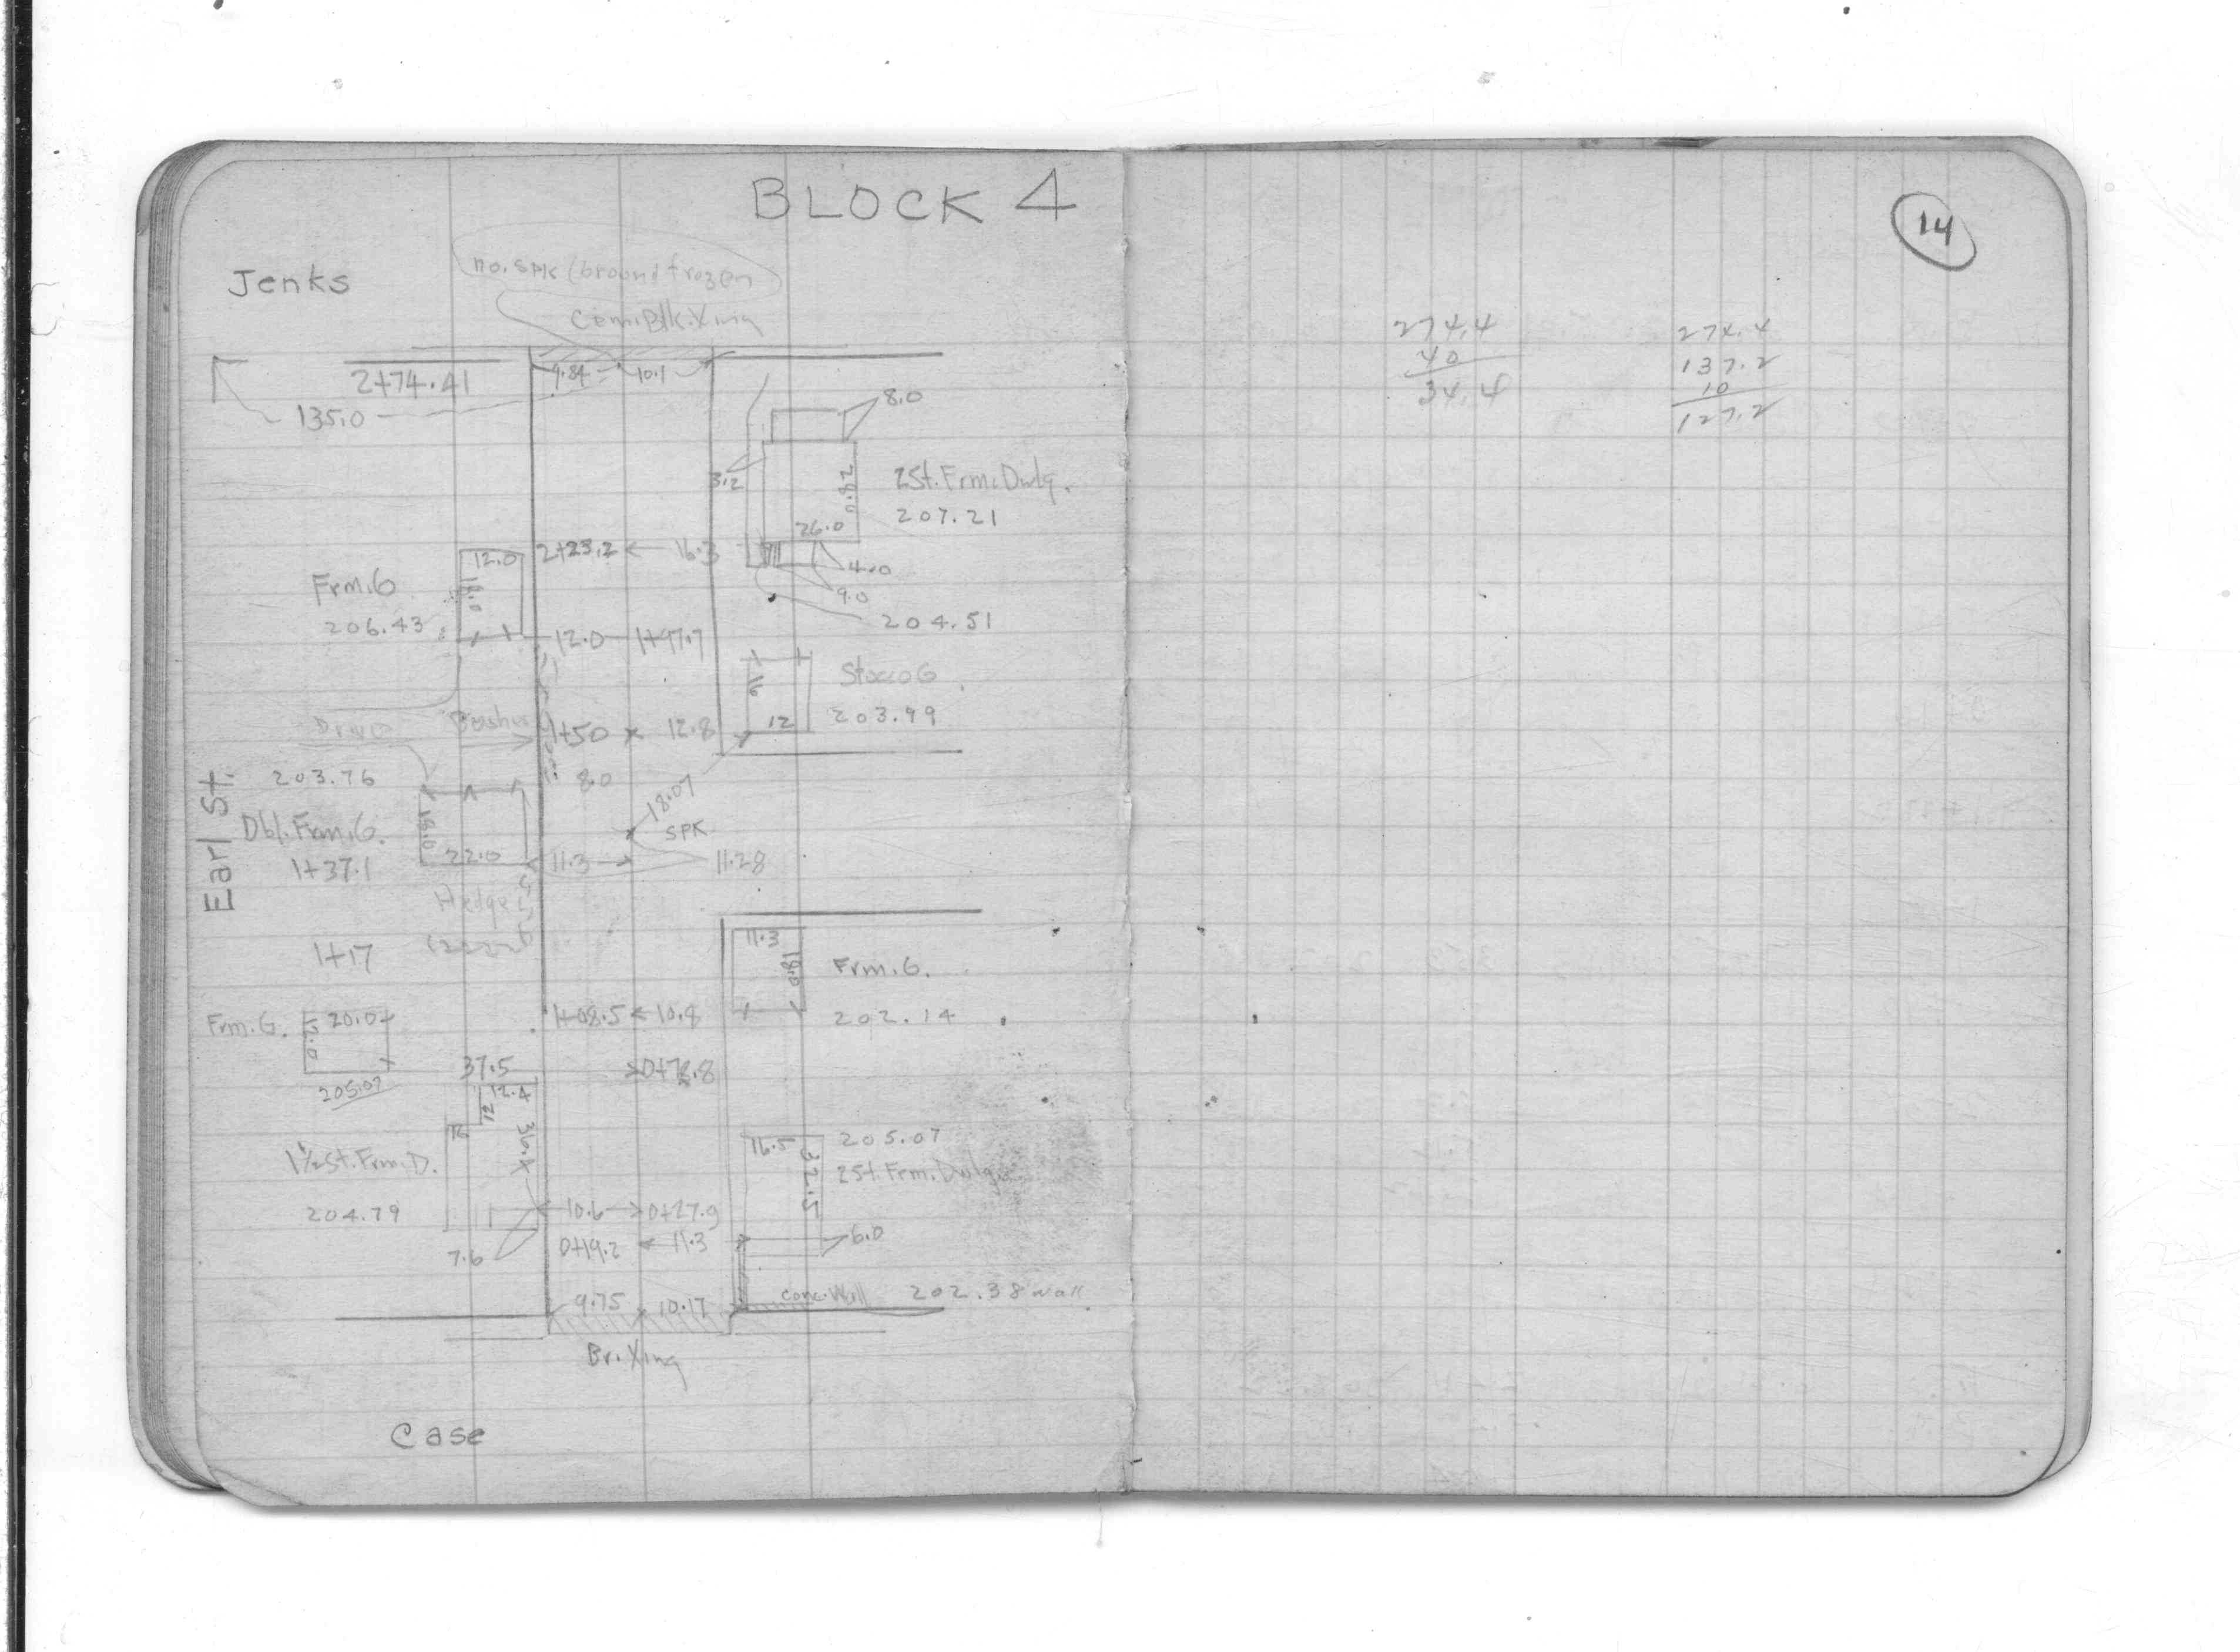 BLOCK 4
14
Jenks
no. SPK (Ground frozen
Cem. Blk. Xing
2+74.41
9.84
10.1
135.0
8.0
3.2
28.0
2St. Frm. Dwlg.
26.0
207.21
12.0
2+23.2
16.3
18.0
4.0
9.0
Frm. G
206.43
204.51
12.0
1+97.7
16
Stucco G
203.99
12
Drive
Bushes
1+50
12.8
203.76
8.0
18.07
SPK
Earl St.
Dbl. Frm. G.
18.0
22.0
1+37.1
11.3
11.28
Hedge
1+17
11.3
18.0
Frm. G.
202.14
Frm. G.
12.0
20.0
1+08.5
10.8
205.07
37.5
0+78.8
12.4
12
16
36.4
1½ St. Frm. D.
204.79
16.5
32.5
205.07
2St. Frm. Dwlg.
10.6
0+27.9
7.6
0+19.2
11.3
6.0
9.75
10.17
conc. Wall
202.38 wall
Br. Xing
Case
274.4
40
34.4
274.4
137.2
10
127.2